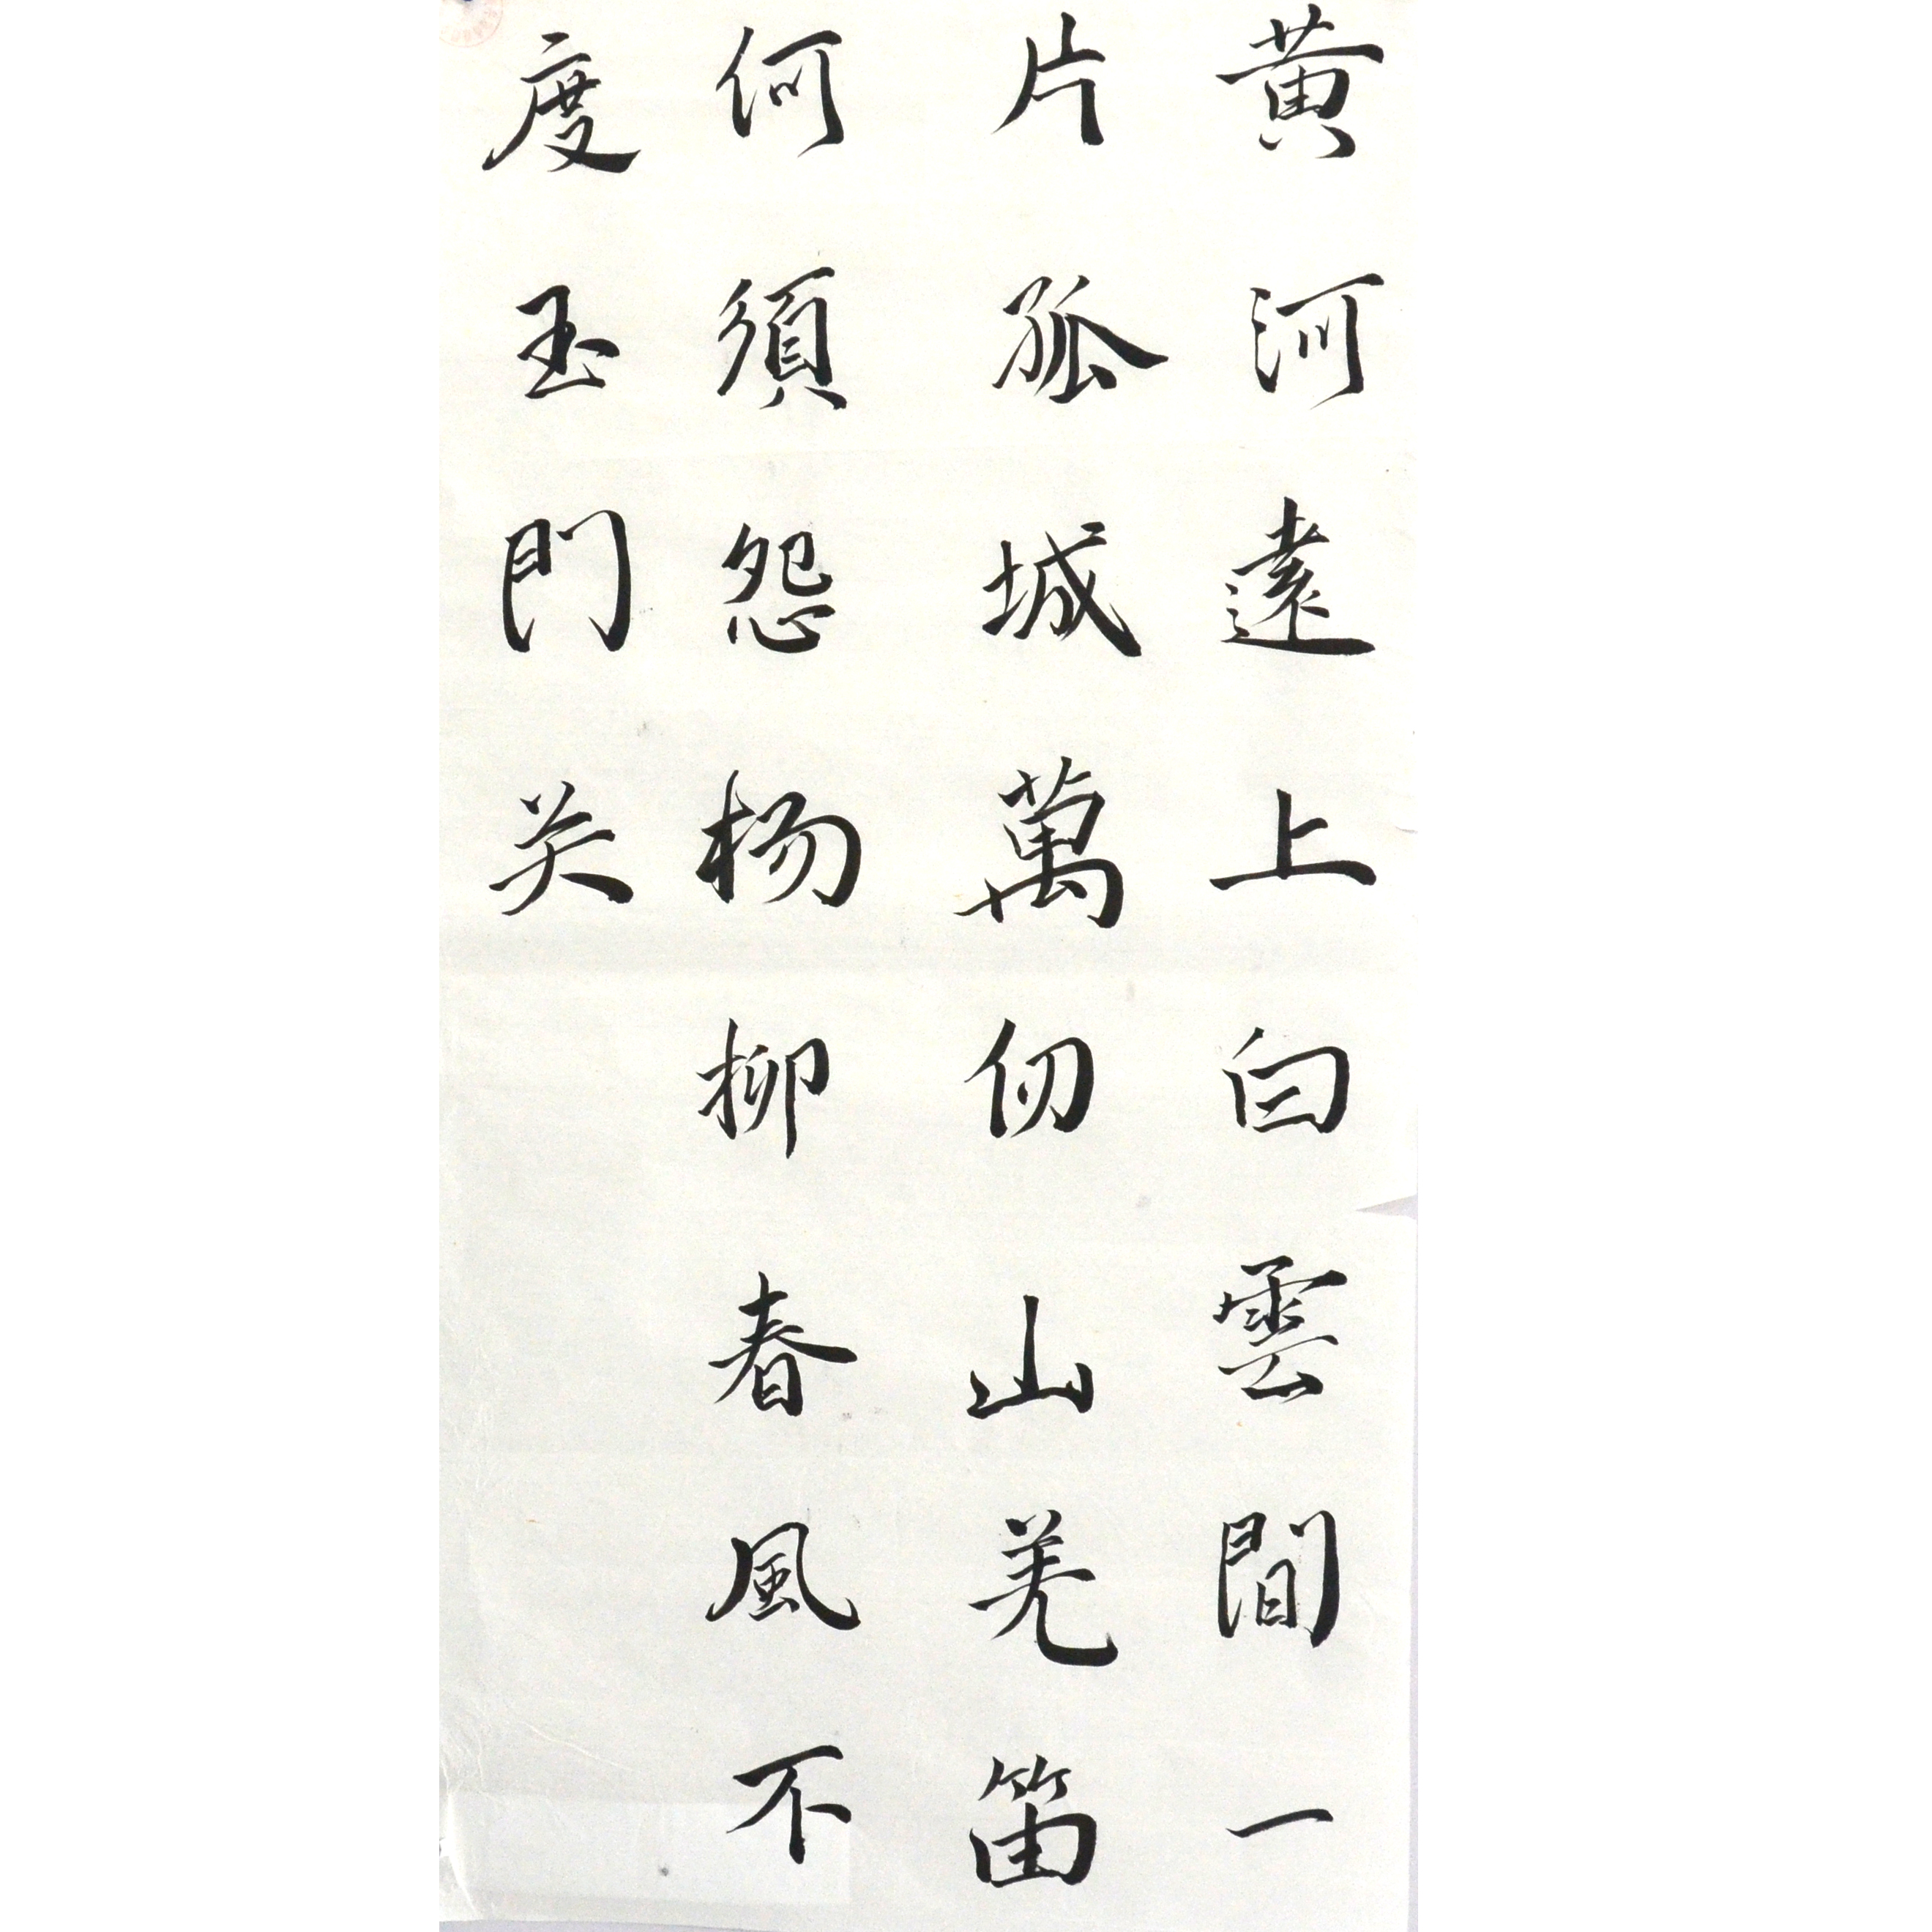 黄河遠上白雲間一
片孤城萬仞山羌笛
何須怨楊柳春風不
度玉門关